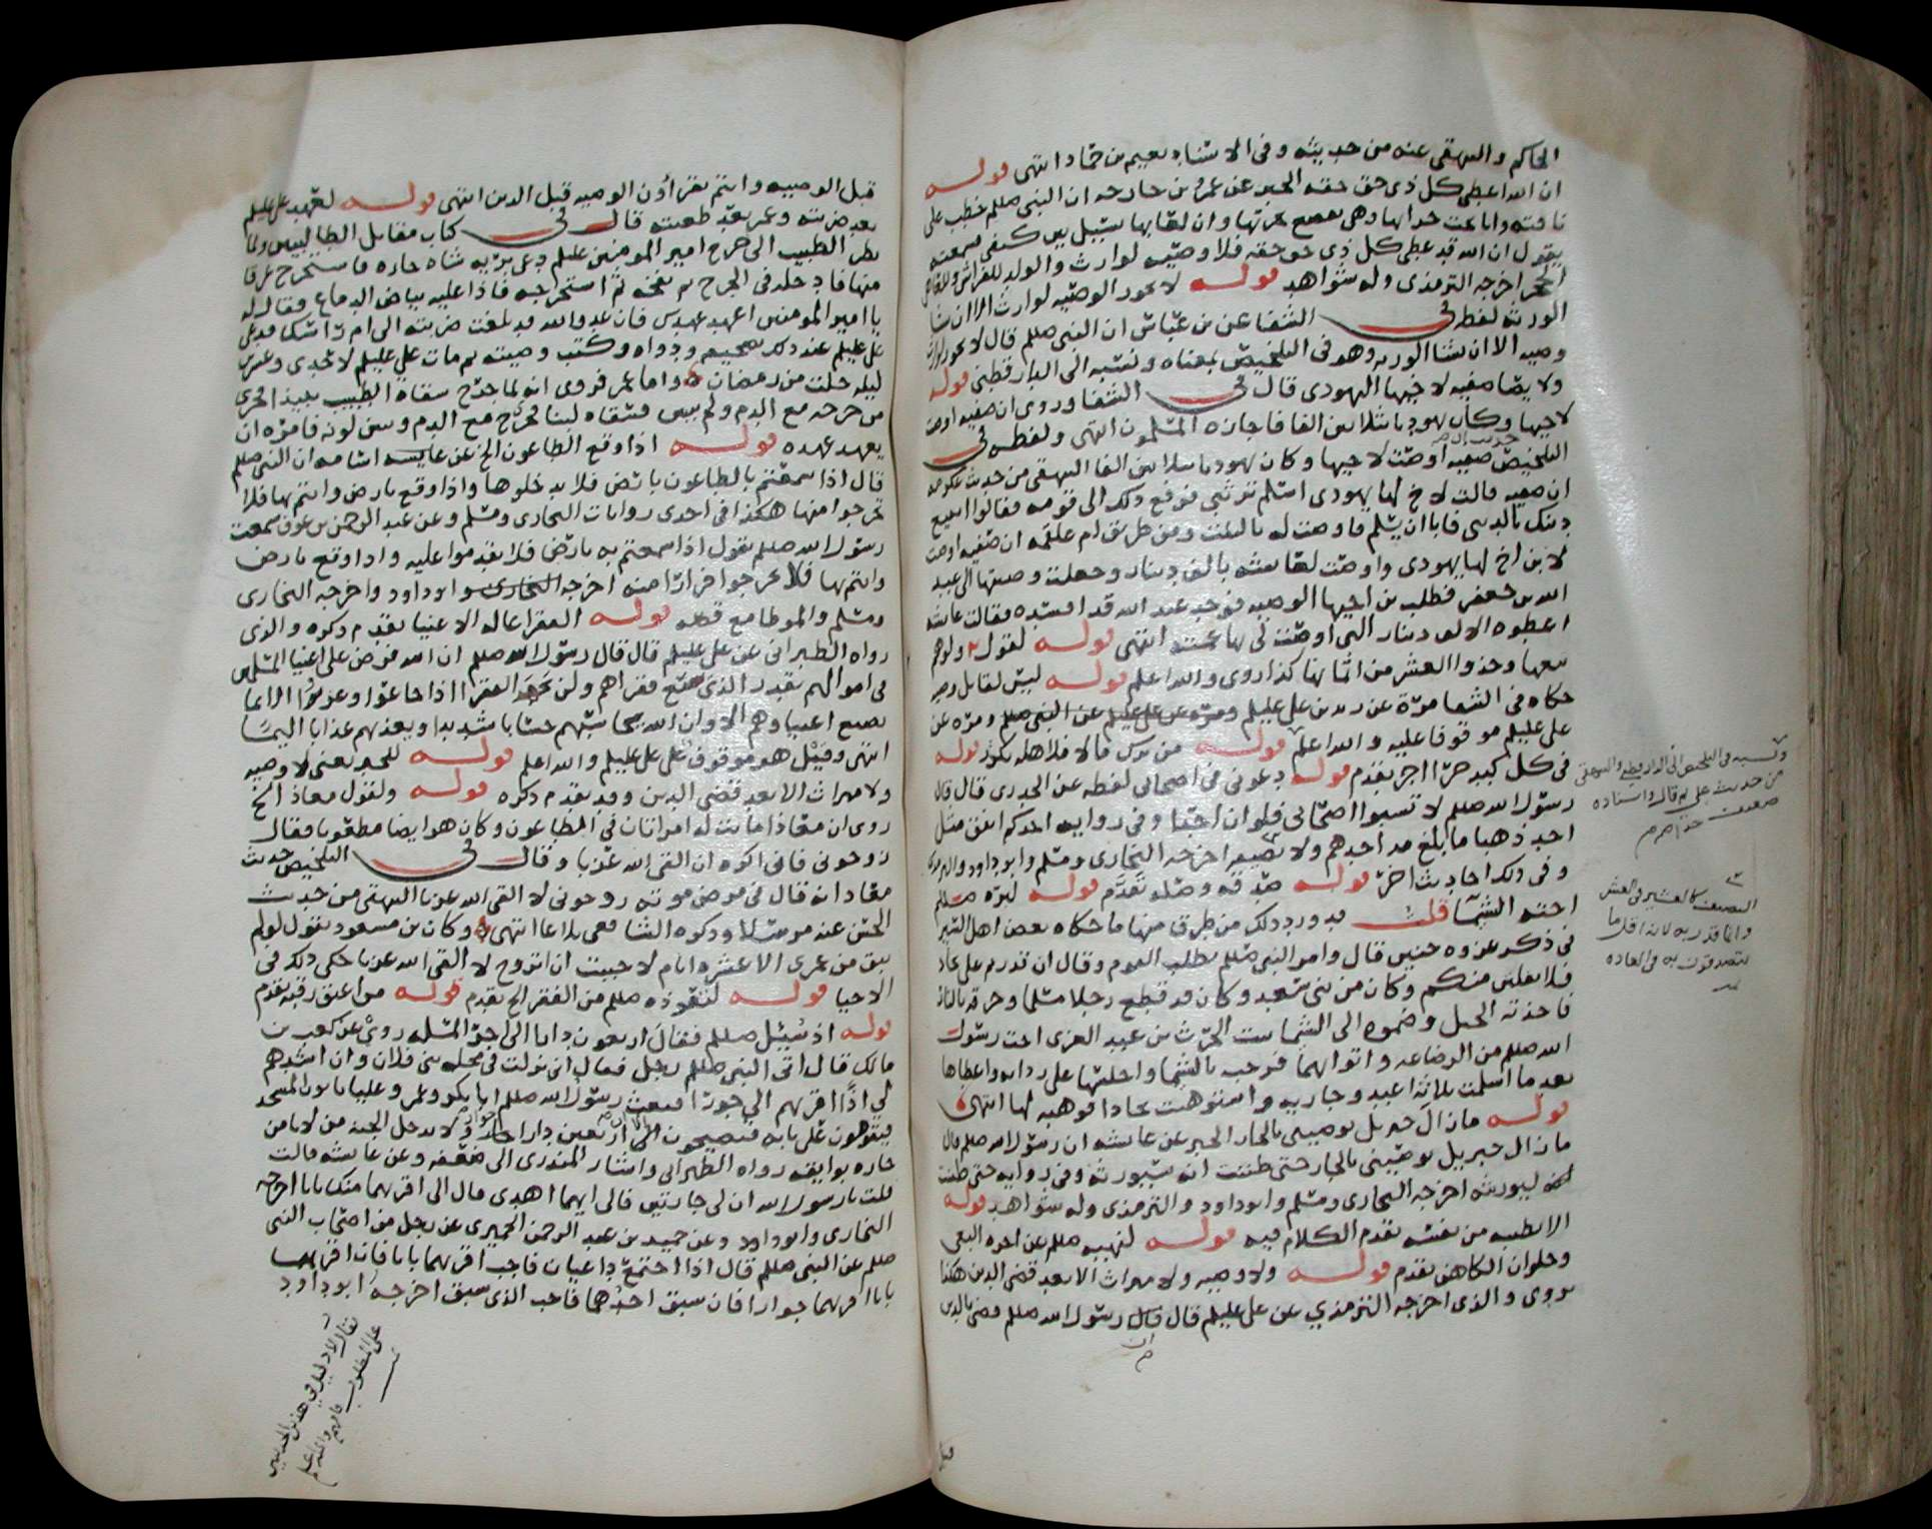 الحاكم والبيهقي عنه من حديثه وفي الاسناد نعيم بن حماد انتهى قوله
ان الله اعطى كل ذي حق حقه الخبر عن عمرو بن خارجه ان النبي صللم خطب على
ناقته وانا تحت جرانها وهي تقصع بجرتها وان لعابها يسيل بين كتفي فسمعته
يقول ان الله قد اعطى كل ذي حق حقه فلا وصيه لوارث والولد للفراش وللعاهر
الحجر اخرجه الترمذي وله شواهد قوله لا تجوز الوصيه لوارث الا ان يشا
الورثه لفظه في الشفا عن بن عباس ان النبي صللم قال لا تجوز لوارث
وصيه الا ان يشا الورثه وهو في التلخيص بمعناه ونسبه الى الدارقطني قوله
ولا يصا صفيه لاخيها اليهودي قال في الشفا وروي ان صفيه اوصت
لاخيها وكان يهوديا بثلاثين الفا فاجازه المسلمون انتهى ولفظه في
التلخيص حديث ان صفيه اوصت لاخيها وكان يهوديا بثلاثين الفا البيهقي من حديث عكرمه
ان صفيه قالت لاخ لها يهودي اسلم ترثني فرفع ذلك الى قومه فقالوا اتبيع
دينك بالدنيا فابا ان يسلم فاوصت له بالثلث ومن طريق ام علقمه ان صفيه اوصت
لابن اخ لها يهودي واوصت لعائشه بالف دينار وجعلت وصيتها الى عبد
الله بن جعفر فطلب بن اخيها الوصيه فوجد عبد الله قد افسده فقالت عائشه
اعطوه الالف دينار التي اوصت لي بها عمته انتهى قوله لقول ولوهم
بيعها وخذوا العشر من اثمانها كذا روي والله اعلم قوله ليس لقاتل وصيه
حكاه في الشفا مرة عن زيد بن علي عليلم ومرة عن علي عليلم عن النبي صللم ومره عن
علي عليلم موقوفا عليه والله اعلم قوله من ترك مالا فلاهله تكرر قوله
في كل كبد حرا اجر تقدم قوله دعوني في اصحابي لفظه عن الخدري قال قال
رسول الله صللم لا تسبوا اصحابي فلو ان احدا وفي روايه احدكم انفق مثل
احد ذهبا ما بلغ مد احدهم ولا نصيفه اخرجه البخاري ومسلم وابو داود والترمذي
وفي ذلك احاديث اخر قوله صدقه وصله تقدم قوله لبره صللم
اخته الشيما قلت قد ورد ذلك من طرق منها ما حكاه بعض اهل السير
في ذكر غزوه حنين قال وامر النبي صللم بطلب القوم وقال ان قدرتم على بجاد
فلا يفلتن منكم وكان من بني سعد وكان قد قطع رجلا مسلما وحرقه بالنار
فاخذته الخيل وضموه الى الشيما بنت الحرث بن عبد العزى اخت رسول
الله صللم من الرضاعه واتوا بهما فرحب بالشيما واجلسها على ردائه واعطاها
بعد ما اسلمت ثلاثة اعبد وجاريه واستوهبت بجادا فوهبه لها انتهى
قوله مازال جبريل يوصيني بالجار الخبر عن عائشه ان رسول الله صللم قال
مازال جبريل يوصيني بالجار حتى ظننت انه سيورثه وفي روايه حتى ظننت
انه ليورثه اخرجه البخاري ومسلم وابو داود والترمذي وله شواهد قوله
الا بطيبه من نفسه تقدم الكلام فيه قوله لنهيه صللم عن اجره البغي
وحلوان الكاهن تقدم قوله ولا وصيه ولا ميراث الا بعد قضى الدين هكذا
روي والذي اخرجه الترمذي عن علي عليلم قال قال رسول الله صللم قضى بالدين
ونسبه في التلخيص الى الدارقطني والبيهقي
من حديث علي ثم قال واسناده
ضعيف جدا
النصيف كالعشير في العشر
وانما قدر به لانه اقل ما
يتصدقون به في العاده
قبل الوصيه وانتم تقراون الوصيه قبل الدين انتهى قوله لعهد علي عليلم
بعد ضربته وعمر بعد طعنته قال في كتاب مقاتل الطالبيين ولما
نظر الطبيب الى جرح امير المومنين عليلم دعى بريه شاه حاره فاستخرج عرقا
منها فادخله في الجرح ثم نفخه ثم استخرجه فاذا عليه بياض الدماغ وقال له
يا امير المومنين اعهد عهدك فان عدو الله قد بلغت ضربته الى ام راسك فدعى
علي عليلم عند ذلك بصحيفه ودواه وكتب وصيته ثم مات علي عليلم لاحدى وعشرين
ليله خلت من رمضان واما عمر فروي انه لما جرح سقاه الطبيب نبيذا فخرج
من جرحه مع الدم ولم يبين فسقاه لبنا فخرج مع الدم وبين لونه فامره ان
يعهد عهده قوله اذا وقع الطاعون الخ عن اسامه ان النبي صللم
قال اذا سمعتم بالطاعون بارض فلا تدخلوها واذا وقع بارض وانتم بها فلا
تخرجوا منها هكذا في احدى روايات البخاري ومسلم وعن عبد الرحمن بن عوف سمعت
رسول الله صللم يقول اذا سمعتم به بارض فلا تقدموا عليه واذا وقع بارض
وانتم بها فلا تخرجوا فرارا منه اخرجه ابو داود واخرجه البخاري
ومسلم والموطا مع قصه قوله الفقرا عاله الاغنيا تقدم ذكره والذي
رواه الطبراني عن علي عليلم قال قال رسول الله صللم ان الله فرض على اغنيا المسلمين
في اموالهم بقدر الذي يسع فقراهم ولن تجهد الفقرا اذا جاعوا وعروا الا بما
يصنع اغنياوهم الا وان الله يحاسبهم حسابا شديدا ويعذبهم عذابا اليما
انتهى وقيل هو موقوف على علي عليلم والله اعلم قوله للخبر يعني لا وصيه
ولا ميراث الا بعد قضى الدين وقد تقدم ذكره قوله ولقول معاذ الخ
روي ان معاذا ماتت له امراتان في الطاعون وكان هو ايضا مطعونا فقال
زوجوني فاني اكره ان القى الله عزبا وقال في التلخيص حديث
معاذ انه قال في مرض موته زوجوني لا القى الله عزبا البيهقي من حديث
الحسن عنه مرسلا وذكره الشافعي بلاغا انتهى وكان بن مسعود يقول لو لم
يبق من عمري الا عشره ايام لاحببت ان اتزوج لا القى الله عزبا حكى ذلك في
الاحيا قوله لتعوذه صللم من الفقر الخ تقدم قوله من اعتق رقبه تقدم
قوله اذ سئيل صللم فقال اربعون دارا الى اخر المسله روي عن كعب بن
مالك قال اتى النبي صللم رجل فقال اني نزلت في محله بني فلان وان اشدهم
لي اذا اقربهم الي جوارا فبعث رسول الله صللم ابا بكر وعمر وعليا ياتون المسجد
فيقوهون على بابه فيصيحون الا ان اربعين دارا جوار ولا يدخل الجنه من لا يامن
جاره بوايقه رواه الطبراني واشار المنذري الى ضعفه وعن عائشه قالت
قلت يا رسول الله ان لي جارتين فالى ايهما اهدي قال الى اقربهما منك بابا اخرجه
البخاري وابو داود وعن حميد بن عبد الرحمن الحميري عن رجل من اصحاب النبي
صللم عن النبي صللم قال اذا اجتمع داعيان فاجب اقربهما بابا فان اقربهما
بابا اقربهما جوارا فان سبق احدهما فاجب الذي سبق اخرجه ابو داود
يقال لا دليل في هذين الحديثين
على المطلوب فافهم والله اعلم